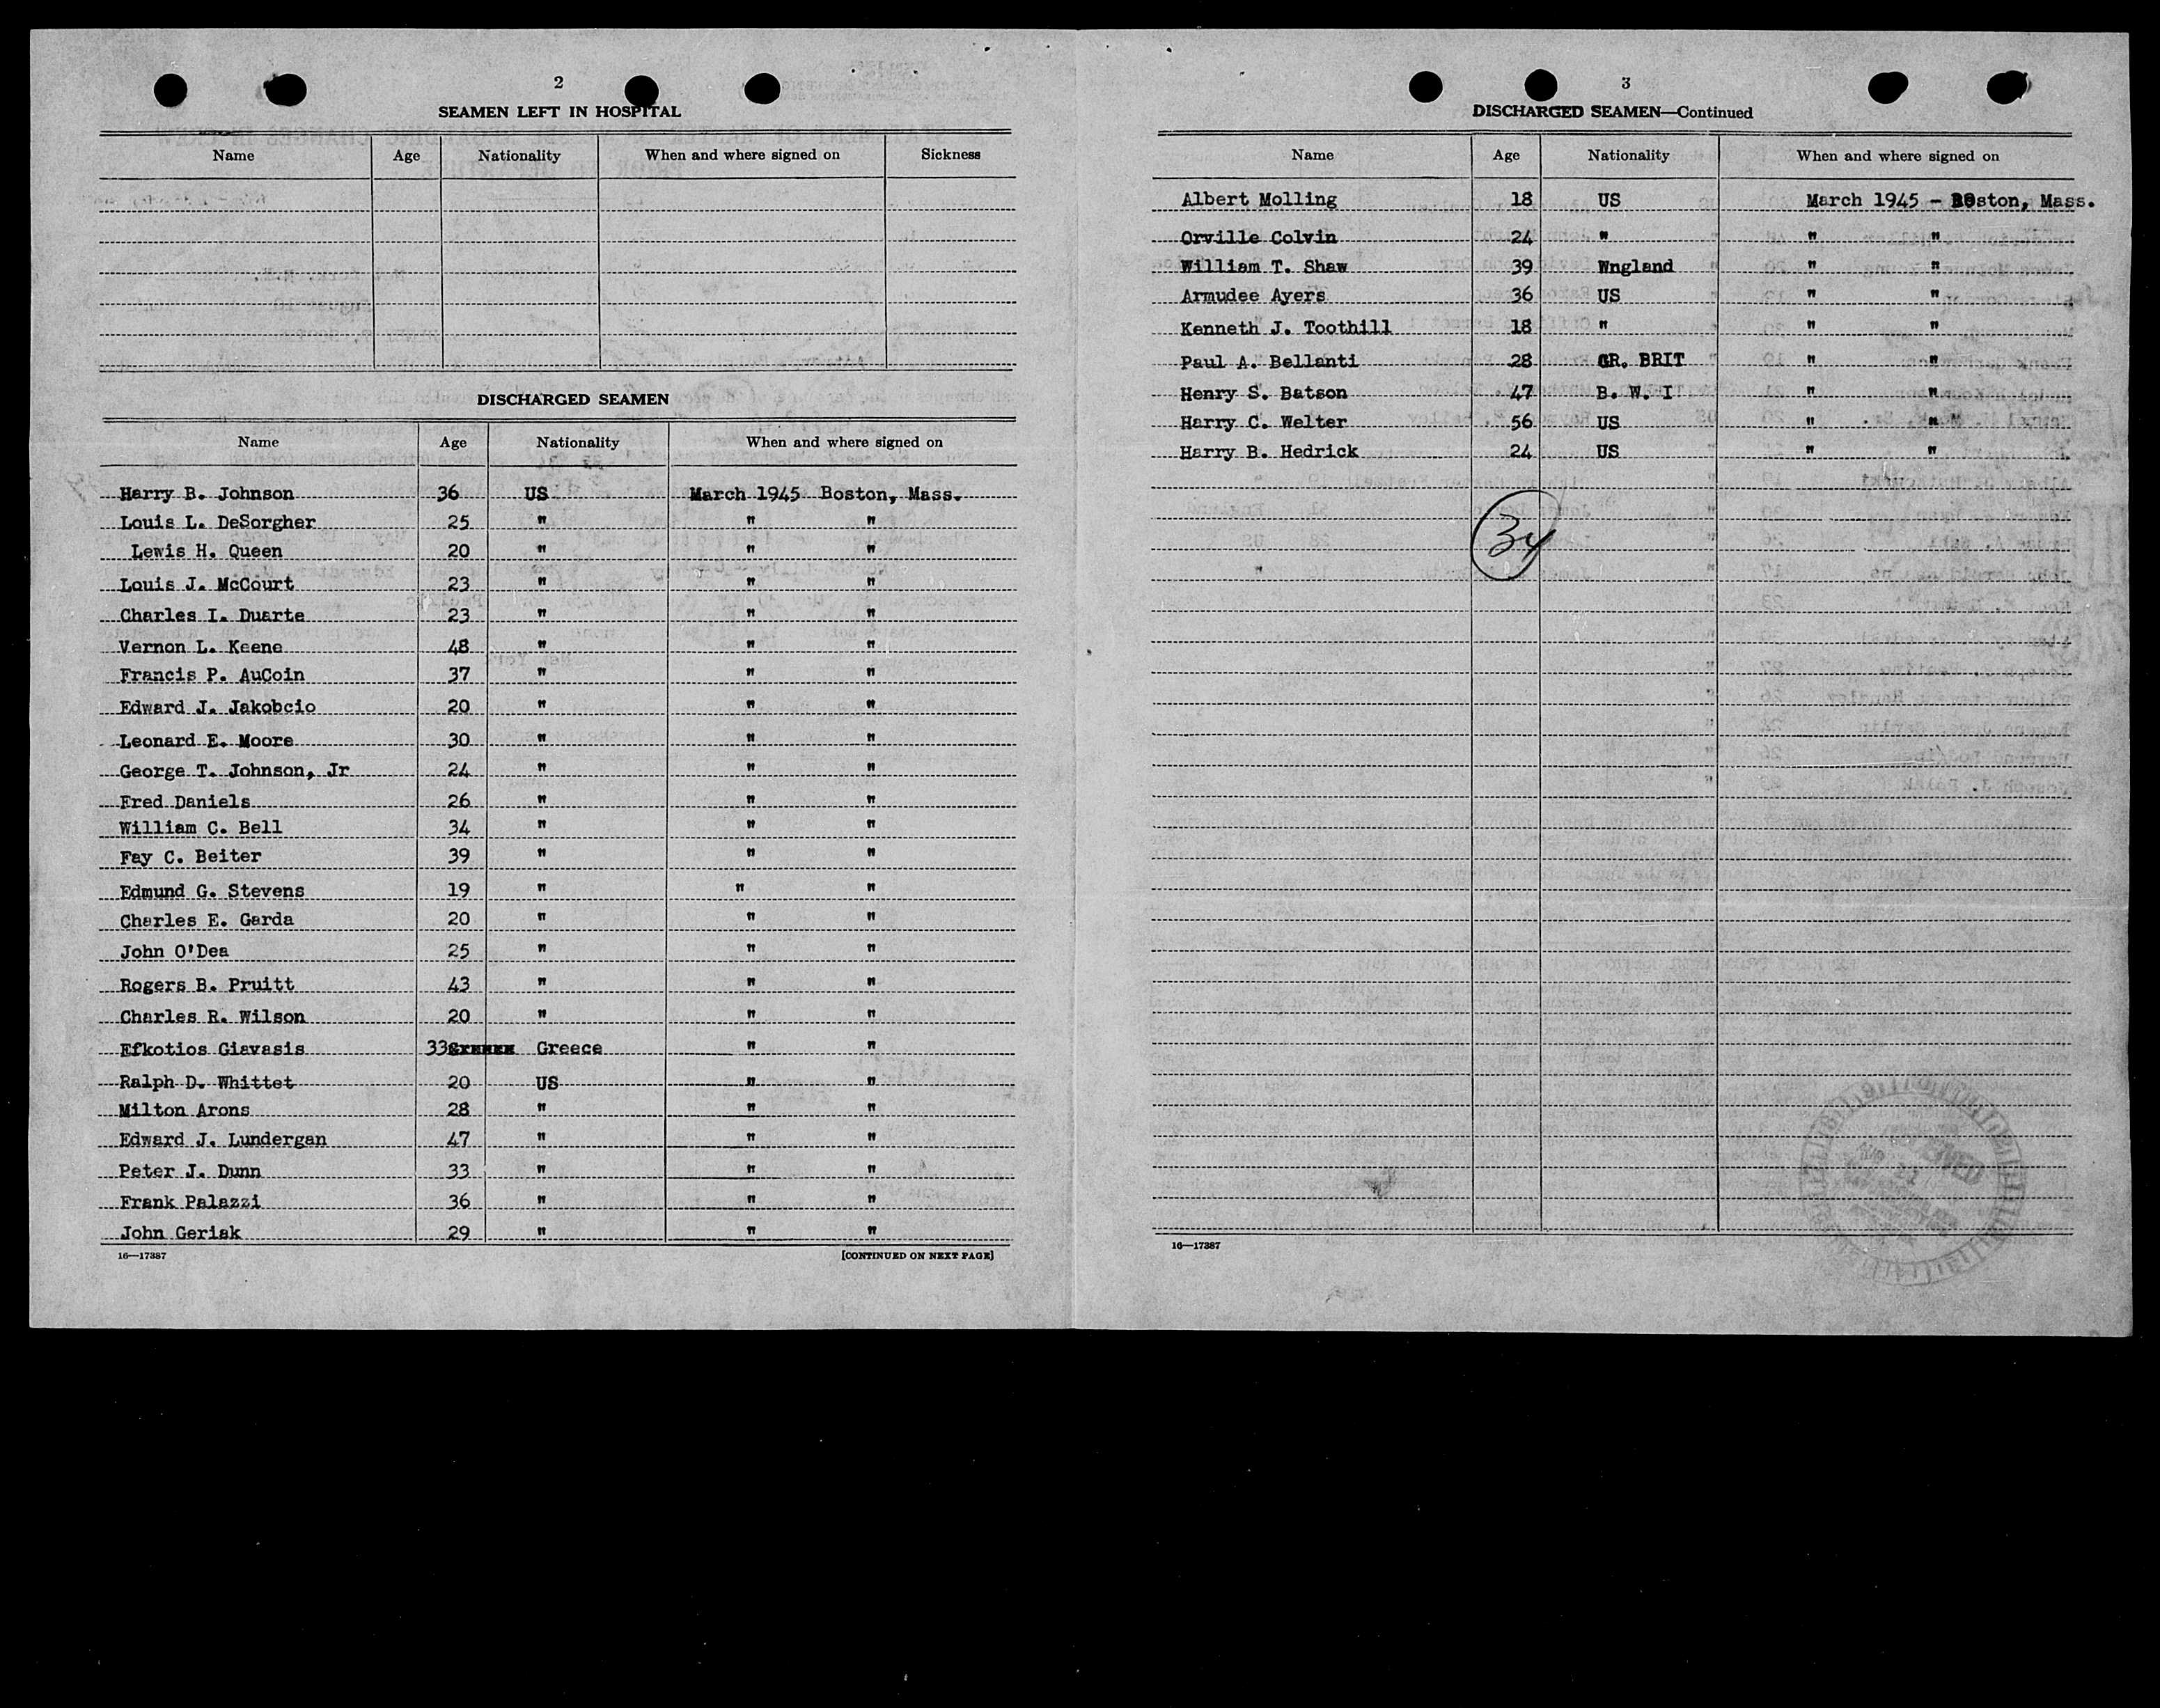 2
SEAMEN LEFT IN HOSPITAL
Name Age Nationality When and where signed on Sickness
DISCHARGED SEAMEN
Name Age Nationality When and where signed on
Harry B. Johnson 36 US March 1945 Boston, Mass.
Louis L. DeSorgher 25 " " "
Lewis H. Queen 20 " " "
Louis J. McCourt 23 " " "
Charles I. Duarte 23 " " "
Vernon L. Keene 48 " " "
Francis P. AuCoin 37 " " "
Edward J. Jakobcio 20 " " "
Leonard E. Moore 30 " " "
George T. Johnson, Jr 24 " " "
Fred Daniels 26 " " "
William C. Bell 34 " " "
Fay C. Beiter 39 " " "
Edmund G. Stevens 19 " " "
Charles E. Garda 20 " " "
John O'Dea 25 " " "
Rogers B. Pruitt 43 " " "
Charles R. Wilson 20 " " "
Efkotios Giavasis 33 Greece " "
Ralph D. Whittet 20 US " "
Milton Arons 28 " " "
Edward J. Lundergan 47 " " "
Peter J. Dunn 33 " " "
Frank Palazzi 36 " " "
John Geriak 29 " " "
16—17387 [CONTINUED ON NEXT PAGE]
3
DISCHARGED SEAMEN—Continued
Name Age Nationality When and where signed on
Albert Molling 18 US March 1945 - Boston, Mass.
Orville Colvin 24 " " "
William T. Shaw 39 Wngland " "
Armudee Ayers 36 US " "
Kenneth J. Toothill 18 " " "
Paul A. Bellanti 28 GR. BRIT " "
Henry S. Batson 47 B. W. I " "
Harry C. Welter 56 US " "
Harry B. Hedrick 24 US " "
34
16—17387